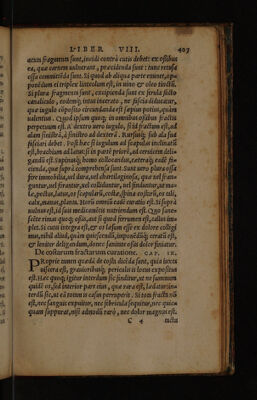 LIBER VIII. 407
acuti fragmenti sunt, incidi contrà cutis debet: ex ossibus
ea, quæ carnem vulnerant, præcidenda sunt: tunc retusa
ossa committenda sunt. Si quid ab aliqua parte eminet, op-
ponendum est triplex linteolum est, in vino & oleo tinctū.
Si plura fragmenta sunt, excipienda sunt ex ferula facto
canaliculo, eodemq; intus incerato, ne fascia diducatur,
quæ iugulo circumdanda est sæpius potius, quàm
valentius. Quod ipsum quoq; in omnibus ossibus fractis
perpetuum est. à dextro vero iugulo, si id fractum est, ad
alam sinistrā, à sinistro ad dexterā. Rursusq; sub ala sua
fasciari debet. Post hæc si iugulum ad scapulas inclinatū
est, brachium ad latus: si in partē priorē, ad cervicem deli-
gandū est. supinusq; homo collocandus, cæteraq; eadē fa-
cienda, quæ suprà comprehensa sunt. Sunt vero plura ossa
ferè immobilia, vel dura, vel chartilaginosa, quæ vel fran-
guntur, vel forantur, vel colliduntur, vel finduntur, ut ma-
læ, pectus, latus, os scapularū, coxæ, spina, coxarū, ta
calx, manus, planta. Horū omniū eadē curatio est. Si suprà
vulnus est, id suis medicamētis nutriendum est. Quo sane-
scēte rimas quoq; ossis, aut si quod foramen est, callus im-
plet. Si cutis integra est, & os læsum esse ex dolore colligi-
mus, nihil aliud, quàm quiescendū, imponēdūq; ceratū est,
& leniter deligandum, donec sanitate ossis dolor finiatur.
De costarum fractarum curatione. CAP. IX.
PRoprie tamen quædā de costis dicēda sunt, quia iuxta
uiscera est, gravioribusq; periculis is locus expositus
est. Hæc quoq; igitur interdum sic finditur, ut ne summum
quidē os, sed interior pars eius, quæ rara est, lædatur: in-
terdū sic, ut ea totum is casus perruperit. Si tota fracta nō
est, nec sanguis expuitur, nec febricula sequitur, nec quic-
quam suppurat, nisi admodū rarò, nec dolor magnus est.
C 4 tactu